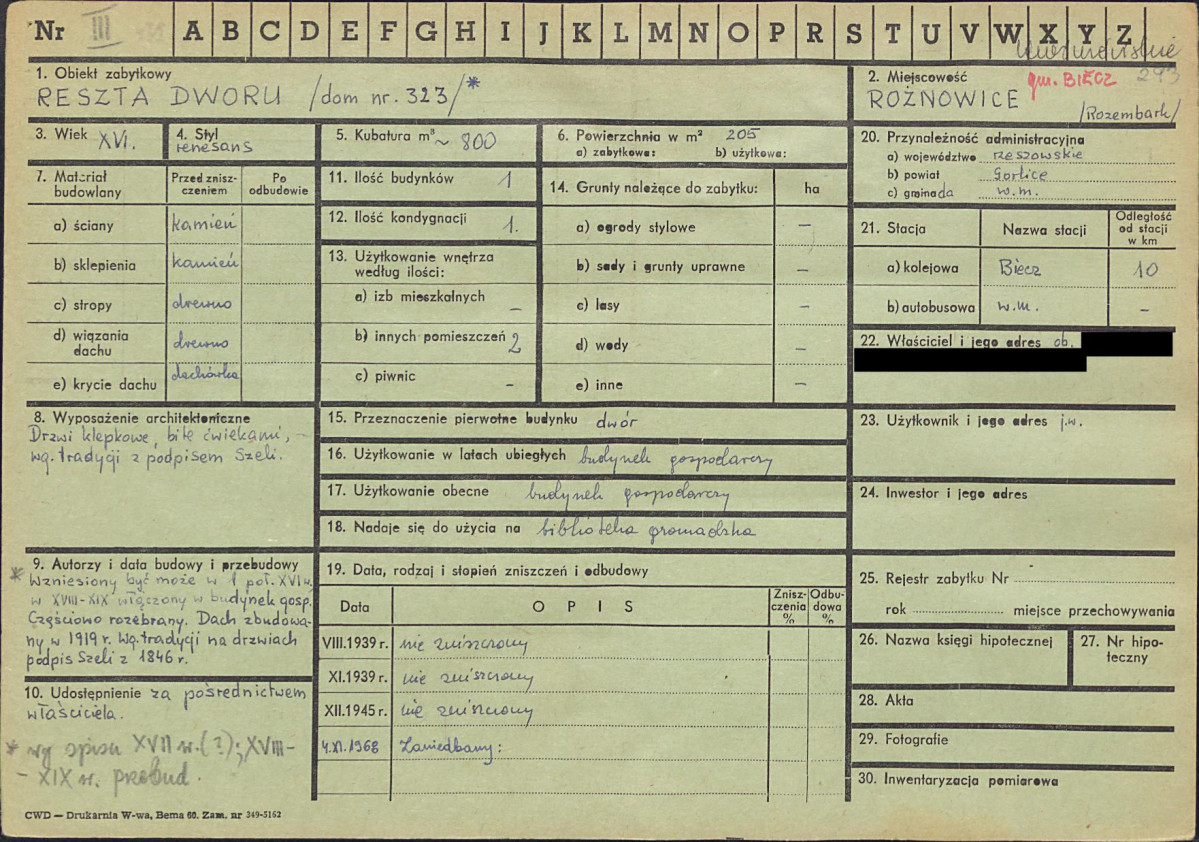 Nr III A B C D E F G H I J K L M N O P R S T U V W X Y Z
293
1. Obiekt zabytkowy
RESZTA DWORU /dom nr. 323/*
2. Miejscowość gm. BIECZ
ROŻNOWICE
/Rozembark/
3. Wiek XVI.
4. Styl
renesans
5. Kubatura m³ ~ 800
6. Powierzchnia w m² 205
a) zabytkowa: b) użytkowa:
7. Materiał budowlany
Przed zniszczeniem
Po odbudowie
a) ściany kamień
b) sklepienia kamień
c) stropy drewno
d) wiązania dachu drewno
e) krycie dachu dachówka
8. Wyposażenie architektoniczne
Drzwi klepkowe, bite ćwiekami, –
wg. tradycji z podpisem Szeli.
9. Autorzy i data budowy i przebudowy
* Wzniesiony być może w 1 poł. XVI w.
w XVIII-XIX włączony w budynek gosp.
Częściowo rozebrany. Dach zbudowa-
ny w 1919 r. Wg. tradycji na drzwiach
podpis Szeli z 1846 r.
10. Udostępnienie za pośrednictwem
właściciela.
* wg spisu XVII w. (?); XVIII-
- XIX w. przebud.
11. Ilość budynków 1
12. Ilość kondygnacji 1.
13. Użytkowanie wnętrza
według ilości:
a) izb mieszkalnych –
b) innych pomieszczeń 2
c) piwnic –
14. Grunty należące do zabytku: ha
a) ogrody stylowe –
b) sady i grunty uprawne –
c) lasy –
d) wody –
e) inne –
15. Przeznaczenie pierwotne budynku dwór
16. Użytkowanie w latach ubiegłych budynek gospodarczy
17. Użytkowanie obecne budynek gospodarczy
18. Nadaje się do użycia na biblioteka gromadzka
19. Data, rodzaj i stopień zniszczeń i odbudowy
Data
O P I S
Zniszczenia %
Odbudowa %
VIII.1939 r. nie zniszczony
XI.1939 r. nie zniszczony
XII.1945 r. nie zniszczony
4.XI.1968 Zaniedbany:
20. Przynależność administracyjna
a) województwo rzeszowskie
b) powiat Gorlice
c) gminada w.m.
21. Stacja
Nazwa stacji
Odległość od stacji w km
a) kolejowa Biecz 10
b) autobusowa w.m. –
22. Właściciel i jego adres ob.
23. Użytkownik i jego adres j.w.
24. Inwestor i jego adres
25. Rejestr zabytku Nr
rok miejsce przechowywania
26. Nazwa księgi hipotecznej
27. Nr hipo-
teczny
28. Akta
29. Fotografie
30. Inwentaryzacja pomiarowa
CWD — Drukarnia W-wa, Bema 60. Zam. nr 349-5162